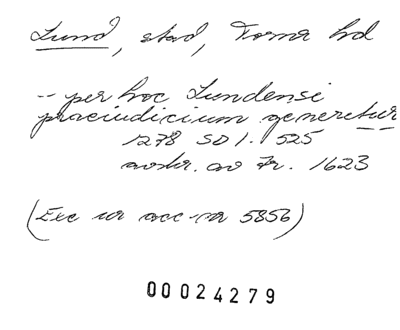 Lund, stad, Torna hd
-- per hoc Lundensi
praeiudicium generetur
1278 SD 1. 525
avskr. av fr. 1623
(Exc ur acc-nr 5856)
00024279